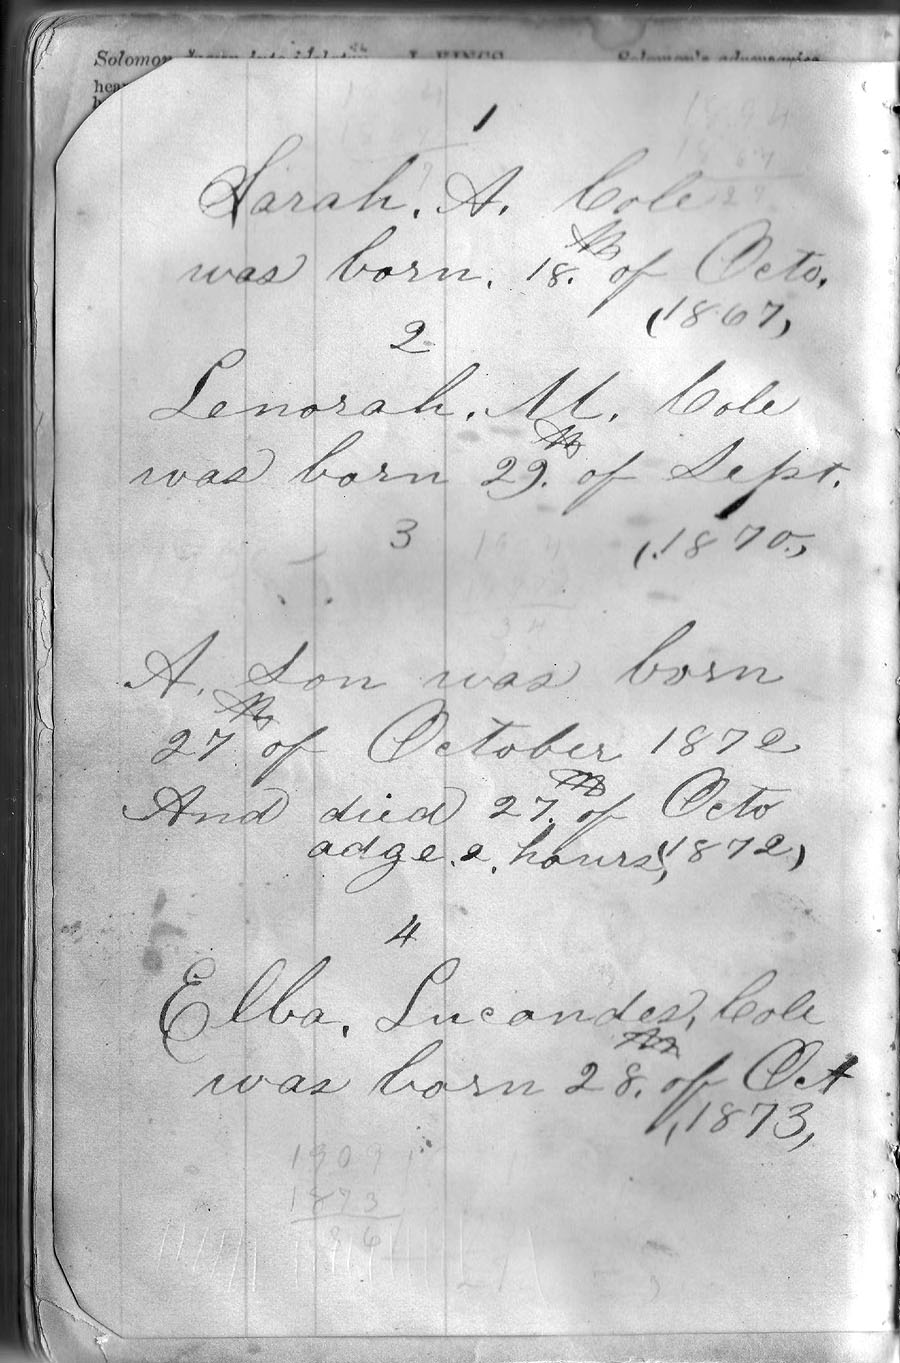 Solomon I. KINGS Solomon's adversaries
hear
1
Sarah. A. Cole
was born. 18.th of Octo.
(1867,)
2
Lenorah. M. Cole
was born 29.th of Sept.
3 (.1870.,)
A. Son was born
27th of October 1872
And died 27.th of Octo
adge. 2. hours, (1872,)
4
Elba. Lucandes, Cole
was born 28.th of Oct
,1873,
1894
1867
27
1904
1870
34
1909
1873
36